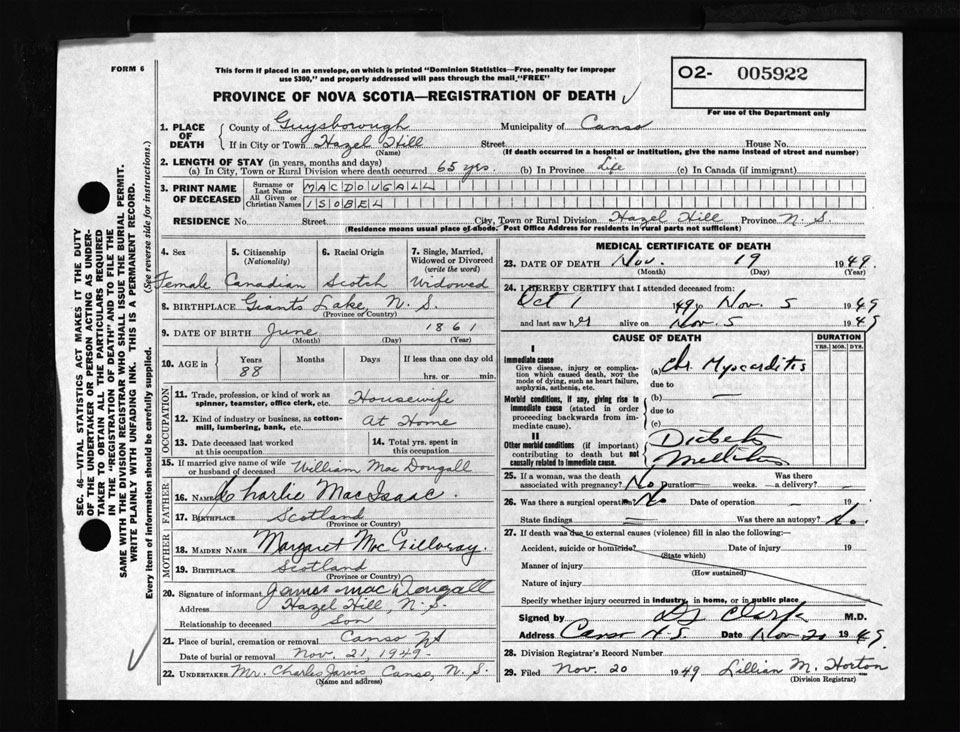 FORM 6
This form if placed in an envelope, on which is printed "Dominion Statistics—Free, penalty for improper
use $300," and properly addressed will pass through the mail, "FREE"
O2- 005922
For use of the Department only
PROVINCE OF NOVA SCOTIA—REGISTRATION OF DEATH
1. PLACE OF DEATH
County of Guysborough Municipality of Canso
If in City or Town Hazel Hill Street House No.
(Name) (If death occurred in a hospital or institution, give the name instead of street and number)
2. LENGTH OF STAY (in years, months and days)
(a) In City, Town or Rural Division where death occurred 65 yrs. (b) In Province Life (c) In Canada (if immigrant)
3. PRINT NAME OF DECEASED
Surname or Last Name MACDOUGALL
All Given or Christian Names ISOBEL
RESIDENCE No. Street City, Town or Rural Division Hazel Hill Province N. S.
(Residence means usual place of abode. Post Office Address for residents in rural parts not sufficient)
4. Sex 5. Citizenship (Nationality) 6. Racial Origin 7. Single, Married, Widowed or Divorced (write the word)
Female Canadian Scotch Widowed
8. BIRTHPLACE Giants Lake, N. S.
(Province or Country)
9. DATE OF BIRTH June 1861
(Month) (Day) (Year)
10. AGE in Years Months Days If less than one day old
88 hrs. or min.
OCCUPATION
11. Trade, profession, or kind of work as spinner, teamster, office clerk, etc. Housewife
12. Kind of industry or business, as cotton-mill, lumbering, bank, etc. At Home
13. Date deceased last worked at this occupation
14. Total yrs. spent in this occupation
15. If married give name of wife or husband of deceased William MacDougall
FATHER
16. NAME Charlie MacIsaac.
17. BIRTHPLACE Scotland
(Province or Country)
MOTHER
18. MAIDEN NAME Margaret MacGillvray.
19. BIRTHPLACE Scotland
(Province or Country)
20. Signature of informant James MacDougall
Address Hazel Hill, N. S.
Relationship to deceased Son
21. Place of burial, cremation or removal Canso NS
Date of burial or removal Nov. 21, 1949-
22. UNDERTAKER Mr. Charles Jarvis Canso, N. S.
(Name and address)
MEDICAL CERTIFICATE OF DEATH
23. DATE OF DEATH Nov. 19 1949.
(Month) (Day) (Year)
24. I HEREBY CERTIFY that I attended deceased from:
Oct 1 1949 to Nov. 5 1949
and last saw her alive on Nov. 5 1949
CAUSE OF DEATH DURATION
YRS. MOS. DYS.
I
Immediate cause
Give disease, injury or complication which caused death, NOT the mode of dying, such as heart failure, asphyxia, asthenia, etc.
(a) Chr. Myocarditis
due to
Morbid conditions, if any, giving rise to immediate cause (stated in order proceeding backwards from immediate cause).
(b) —
due to
(c)
II
Other morbid conditions (if important) contributing to death but not causally related to immediate cause.
Diabetes
Mellitus
25. If a woman, was the death associated with pregnancy? No Duration weeks. Was there a delivery? –
26. Was there a surgical operation? No Date of operation — 19
State findings — Was there an autopsy? No.
27. If death was due to external causes (violence) fill in also the following:—
Accident, suicide or homicide? Date of injury 19
(State which)
Manner of injury
(How sustained)
Nature of injury
Specify whether injury occurred in industry, in home, or in public place
Signed by Clarke M.D.
Address Canso N.S. Date Nov 20 1949
28. Division Registrar's Record Number
29. Filed Nov. 20 1949 Lillian M. Horton
(Division Registrar)
SEC. 46—VITAL STATISTICS ACT MAKES IT THE DUTY
OF THE UNDERTAKER OR PERSON ACTING AS UNDER-
TAKER TO OBTAIN ALL THE PARTICULARS REQUIRED
IN THE "REGISTRATION OF DEATH" AND TO FILE THE
SAME WITH THE DIVISION REGISTRAR WHO SHALL ISSUE THE BURIAL PERMIT.
WRITE PLAINLY WITH UNFADING INK. THIS IS A PERMANENT RECORD.
Every item of information should be carefully supplied. (See reverse side for instructions.)